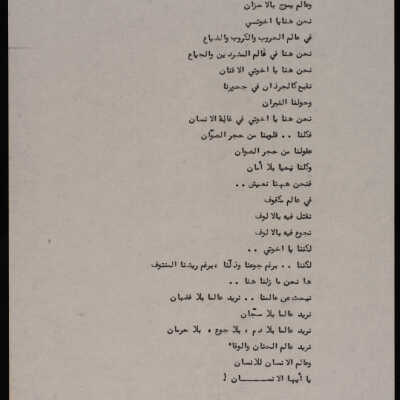 وعالم يموج بالاحزان
نحن هنا يا اخوتي
في عالم الحروب والكروب والضياع
نحن هنا في عالم المشردين والجياع
نحن هنا يا اخوتي الاقنان
نقبع كالجرذان في جحورنا
وحولنا النيران
نحن هنا يا اخوتي في غابة الانسان
فكلنا .. قلوبنا من حجر الصوّان
عقولنا من حجر الصوان
وكلنا نحيا بلا أمان
فنحن ههنا نعيش ..
في عالم مكفوف
نقتل فيه بالالوف
نجوع فيه بالالوف
لكننا يا اخوتي ..
لكننا .. برغم جوعنا وذلّنا ، برغم ريشنا المنتوف
ها نحن ما زلنا هنا ..
نبحث عن عالمنا .. نريد عالما بلا قضبان
نريد عالما بلا سجّان
نريد عالما بلا دم ، بلا جوع ، بلا حرمان
نريد عالم الحنان والوفاء
وعالم الانسان للانسان
يا أيها الانســــان !